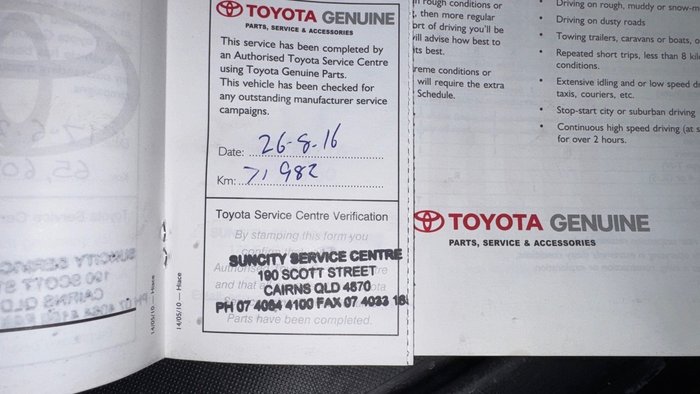 TOYOTA GENUINE
PARTS, SERVICE & ACCESSORIES
This service has been completed by
an Authorised Toyota Service Centre
using Toyota Genuine Parts.
This vehicle has been checked for
any outstanding manufacturer service
campaigns.
Date: 26-8-16
Km: 71 982
Toyota Service Centre Verification
By stamping this form you
SUNCITY SERVICE CENTRE
190 SCOTT STREET
and that
CAIRNS QLD 4870
PH 07 4064 4100 FAX 07 4033 16
Parts have been completed.
14/05/10 — Hiace
14/05/10 — Hiace
rough conditions or
, then more regular
ort of driving you'll be
will advise how best to
its best.
reme conditions or
will require the extra
Schedule.
Driving on rough, muddy or snow-m
• Driving on dusty roads
• Towing trailers, caravans or boats, o
• Repeated short trips, less than 8 kil
conditions.
• Extensive idling and or low speed d
taxis, couriers, etc.
• Stop-start city or suburban driving
• Continuous high speed driving (at
for over 2 hours.
TOYOTA GENUINE
PARTS, SERVICE & ACCESSORIES